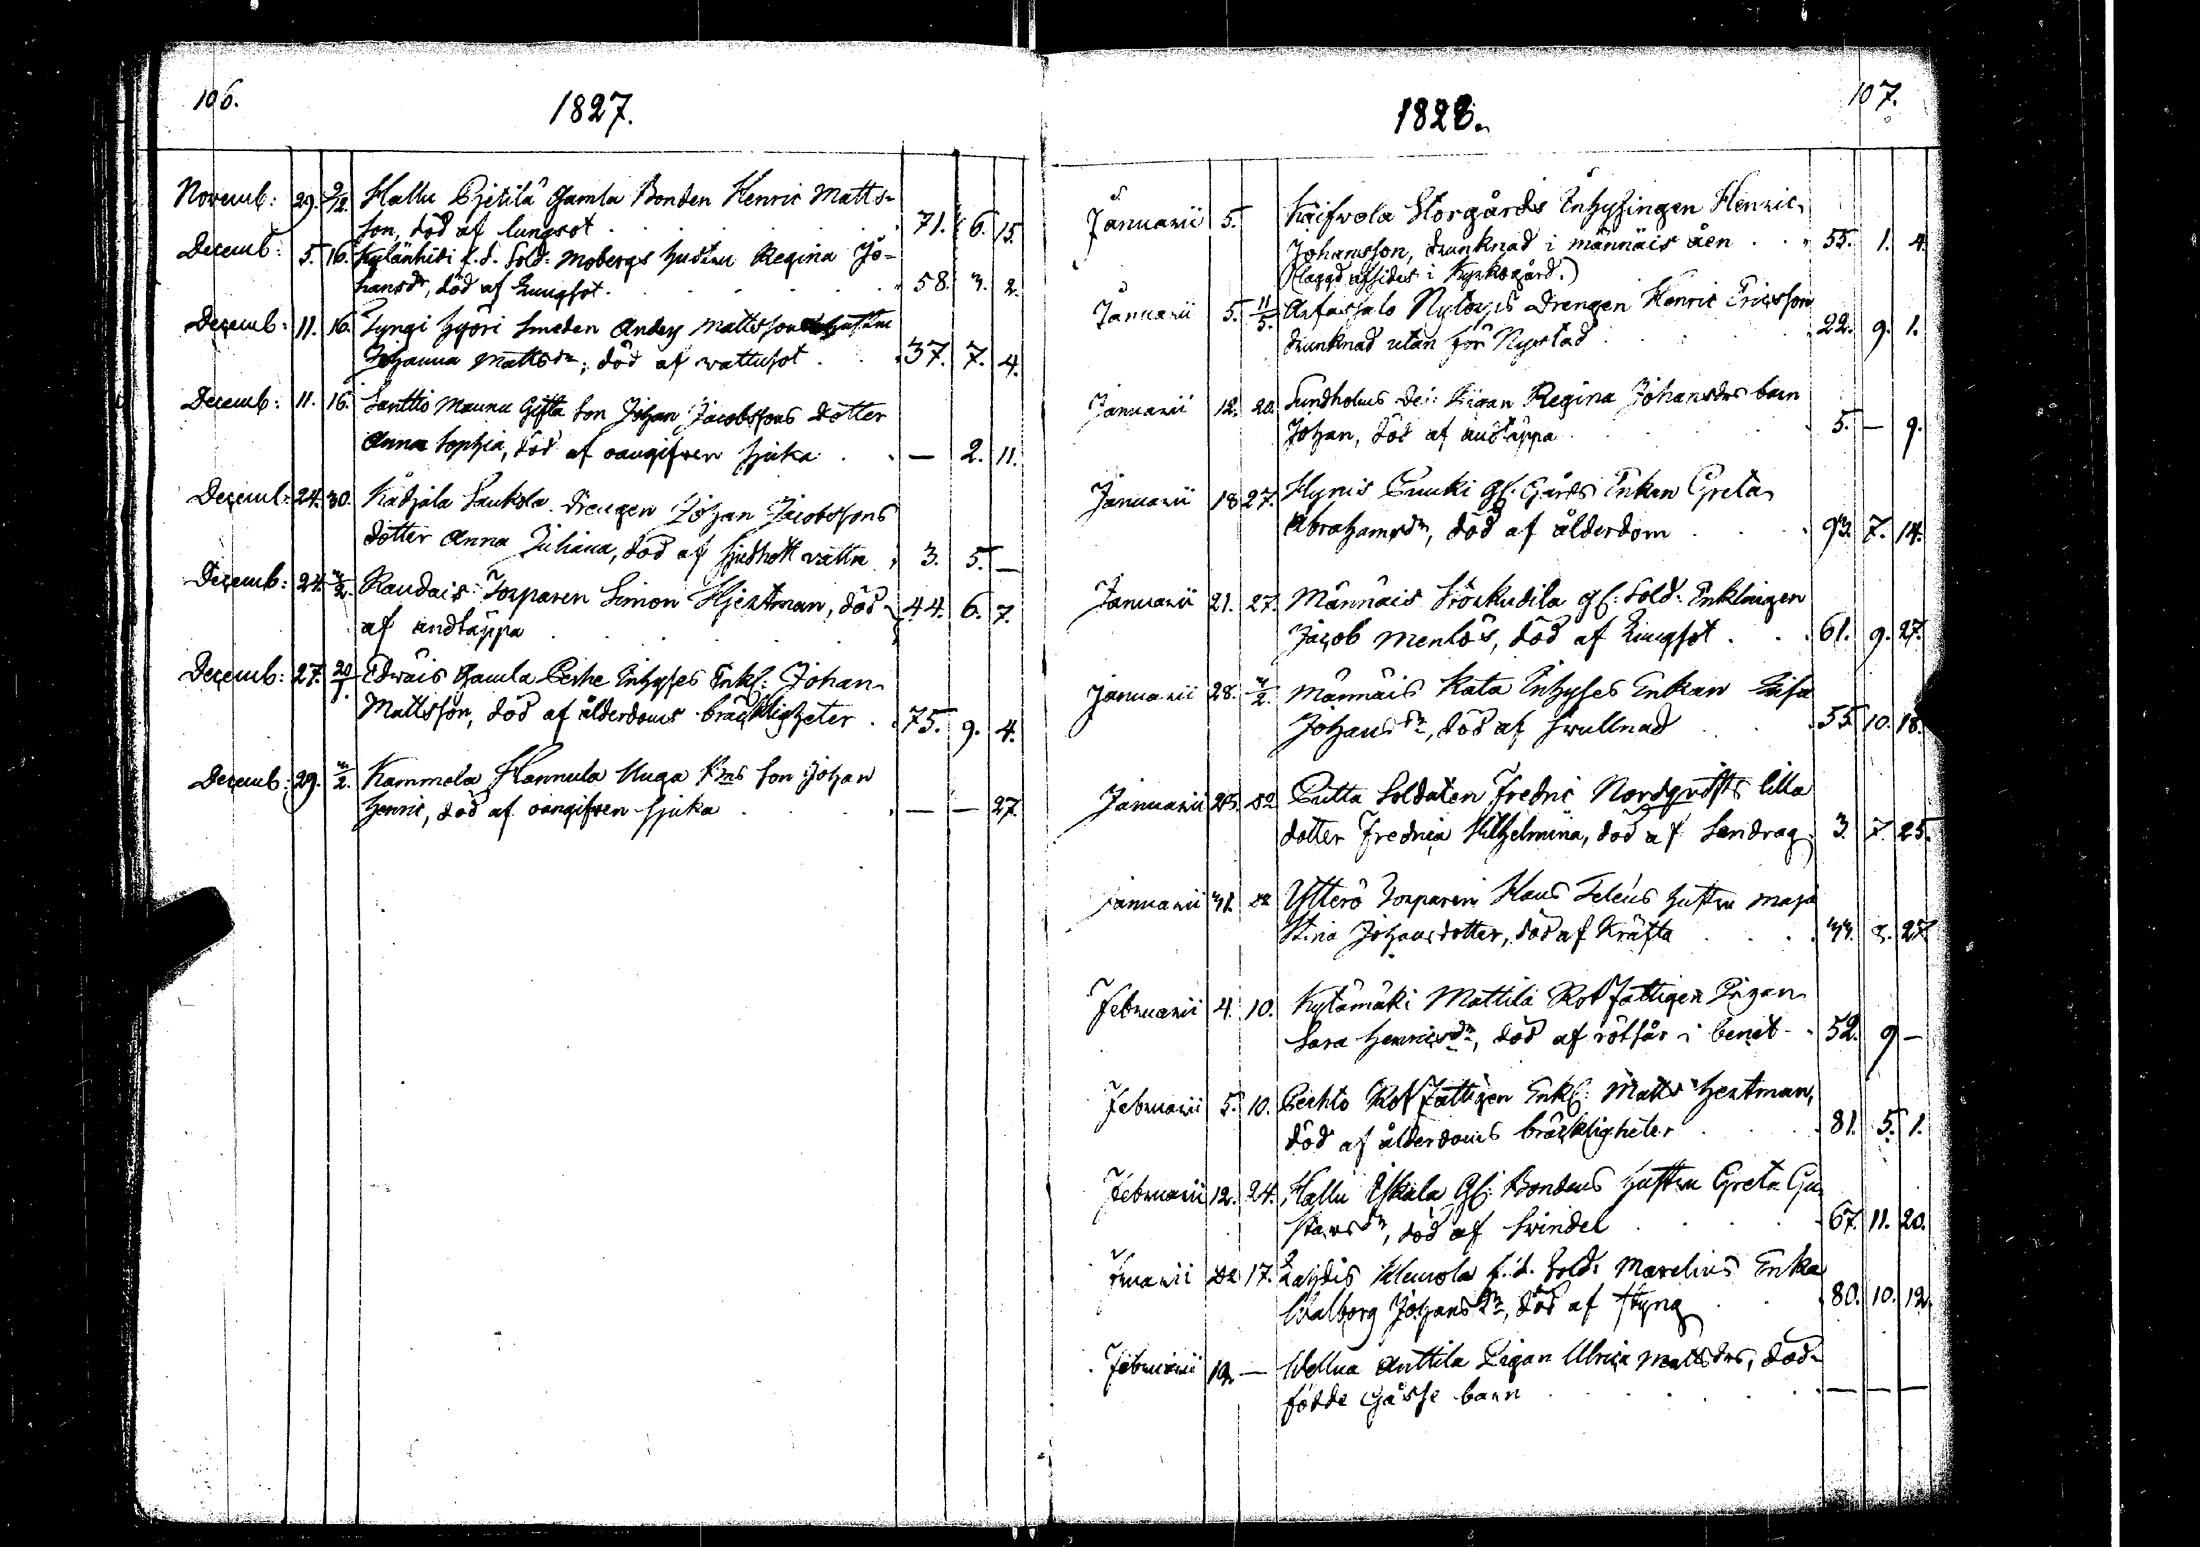 106.
1827.
Novemb: 29. 9/12. Hallu Pjetilä Gamla Bonden Henric Matts-
son, död af lungsot . . . 71. 6. 15.
Decemb: 5. 16. Kylänhidi f.d. Sold: Mobergs hustru Regina Jo-
hansdr, död af Lungsot . . . 58. 3. 2.
Decemb: 11. 16. Lyngi Hyöri Smeden Anders Mattssons hustru
Johanna Mattsdr, död af wattusot . . 37. 7. 4.
Decemb: 11. 16. Santtio Maunu Gifta Son Johan Jacobssons dotter
Anna Sophia, död af oangifwen sjuka . . — 2. 11.
Decemb: 24. 30. Kadjala Saukola Drengen Johan Jacobssons
dotter Anna Juliana, död af sjudhett vattn . 3. 5. —
Decemb: 24. 3/2. Raudais Torparen Simon Hjertman, död 44. 6. 7.
af andtäppa . . .
Decemb: 27. 20/1. Edwais Gamla Perhe Inhyses Enkl: Johan
Mattsson, död af ålderdoms bräckligheter . 75. 9. 4.
Decemb: 29. 3/2. Kammela Hannula Unga Bdns Son Johan
Henric, död af oangifven sjuka . . — — 27.
1828.
107.
Januarii 5. Kaifwola Storgårds Inhysingen Henric
Johansson, drunknad i männäis åen . . 55. 1. 4.
(laggd afsides i Kyrkogård.)
Januarii 5. 11/5. Arfassalo Nytorps Drengen Henric Ericsson
drunknad utan för Nystad . . . 22. 9. 1.
Januarii 12. 20. Sundholms Dei: Pigan Regina Johansdrs barn
Johan, död af andtäppa . . . 5. — 9.
Januarii 18 27. Hynis Puuki Gl: Gårds Enkan Greta
Abrahamsdr, död af ålderdom . . . 93. 7. 14.
Januarii 21. 27. Männäis Sröukudila gl: Sold: Enklingen
Jacob Menlös, död af Lungsot . . . 61. 9. 27.
Januarii 28. 3/2. Männäis Kata Inhyses Enkan Lisa
Johansdr, död af Swullnad . . 55 10. 18.
Januarii Putta Soldaten Fredric Nordqvists lilla
dotter Fredrica Wilhelmina, död af Sendrag 3. 7. 25.
Januarii 31. Ytterö Torparen Hans Seleus hustru Maja
Stina Johansdotter, död af Kräfta . . . 33. 3. 27
Februarii 4. 10. Kylämäki Mattila Rot fattigen Pigan
Sara Henricsdr, död af rötsår i benet . 52. 9 —
Februarii 5. 10. Perhto Rot Fattigen Enkl: Matts Hertman,
död af ålderdoms bräckligheter . . 81. 5. 1.
Februarii 12. 24. Hallu Iskala Gl: Bondens hustru Greta Gu-
stavsdr, död af Svindel . . . 67. 11. 20.
17. Kahdis Klemola f.d. Sold: Marelius Enka
Walborg Johansdr, död af styng . . 80. 10. 12.
Februarii 19. — Wellua Anttila Pigan Ulrica Mattsdrs, död-
födde Gåsse barn . . . — — —